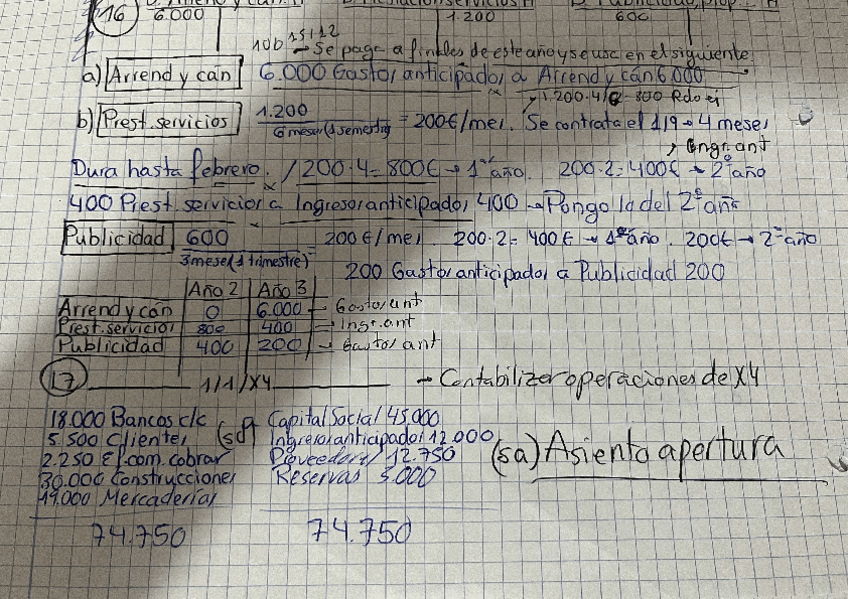 16 6.000 1.200 600
15/12
→ Se paga a finales de este año y se usa en el siguiente
a) Arrend y cán 6.000 Gastos anticipados a Arrend y cán 6.000
b) Prest. servicios 1.200 / 6 meses (1 semestre) = 200€/mes. Se contrata el 1/9 → 4 meses
Ingr. ant
Dura hasta febrero. / 200·4 = 800€ → 1er año. 200·2 = 400€ → 2º año
400 Prest. servicios a Ingresos anticipados 400 → Pongo lo del 2º año
Publicidad 600 / 3 meses (1 trimestre) = 200€/mes. 200·2 = 400€ → 1er año. 200€ → 2º año
200 Gastos anticipados a Publicidad 200
Año 2 Año 3
Arrend y cán 0 6.000 → Gastos ant
Prest. servicios 800 400 → Ingr. ant
Publicidad 400 200 → Gastos ant
17 1/1/X4 → Contabilizar operaciones de X4
18.000 Bancos c/c (sd) Capital Social 45.000
5.500 Clientes Ingresos anticipados 12.000
2.250 Ef. com. cobrar Proveedores 12.750
30.000 Construcciones Reservas 5.000
19.000 Mercaderías
(sa) Asiento apertura
74.750 74.750